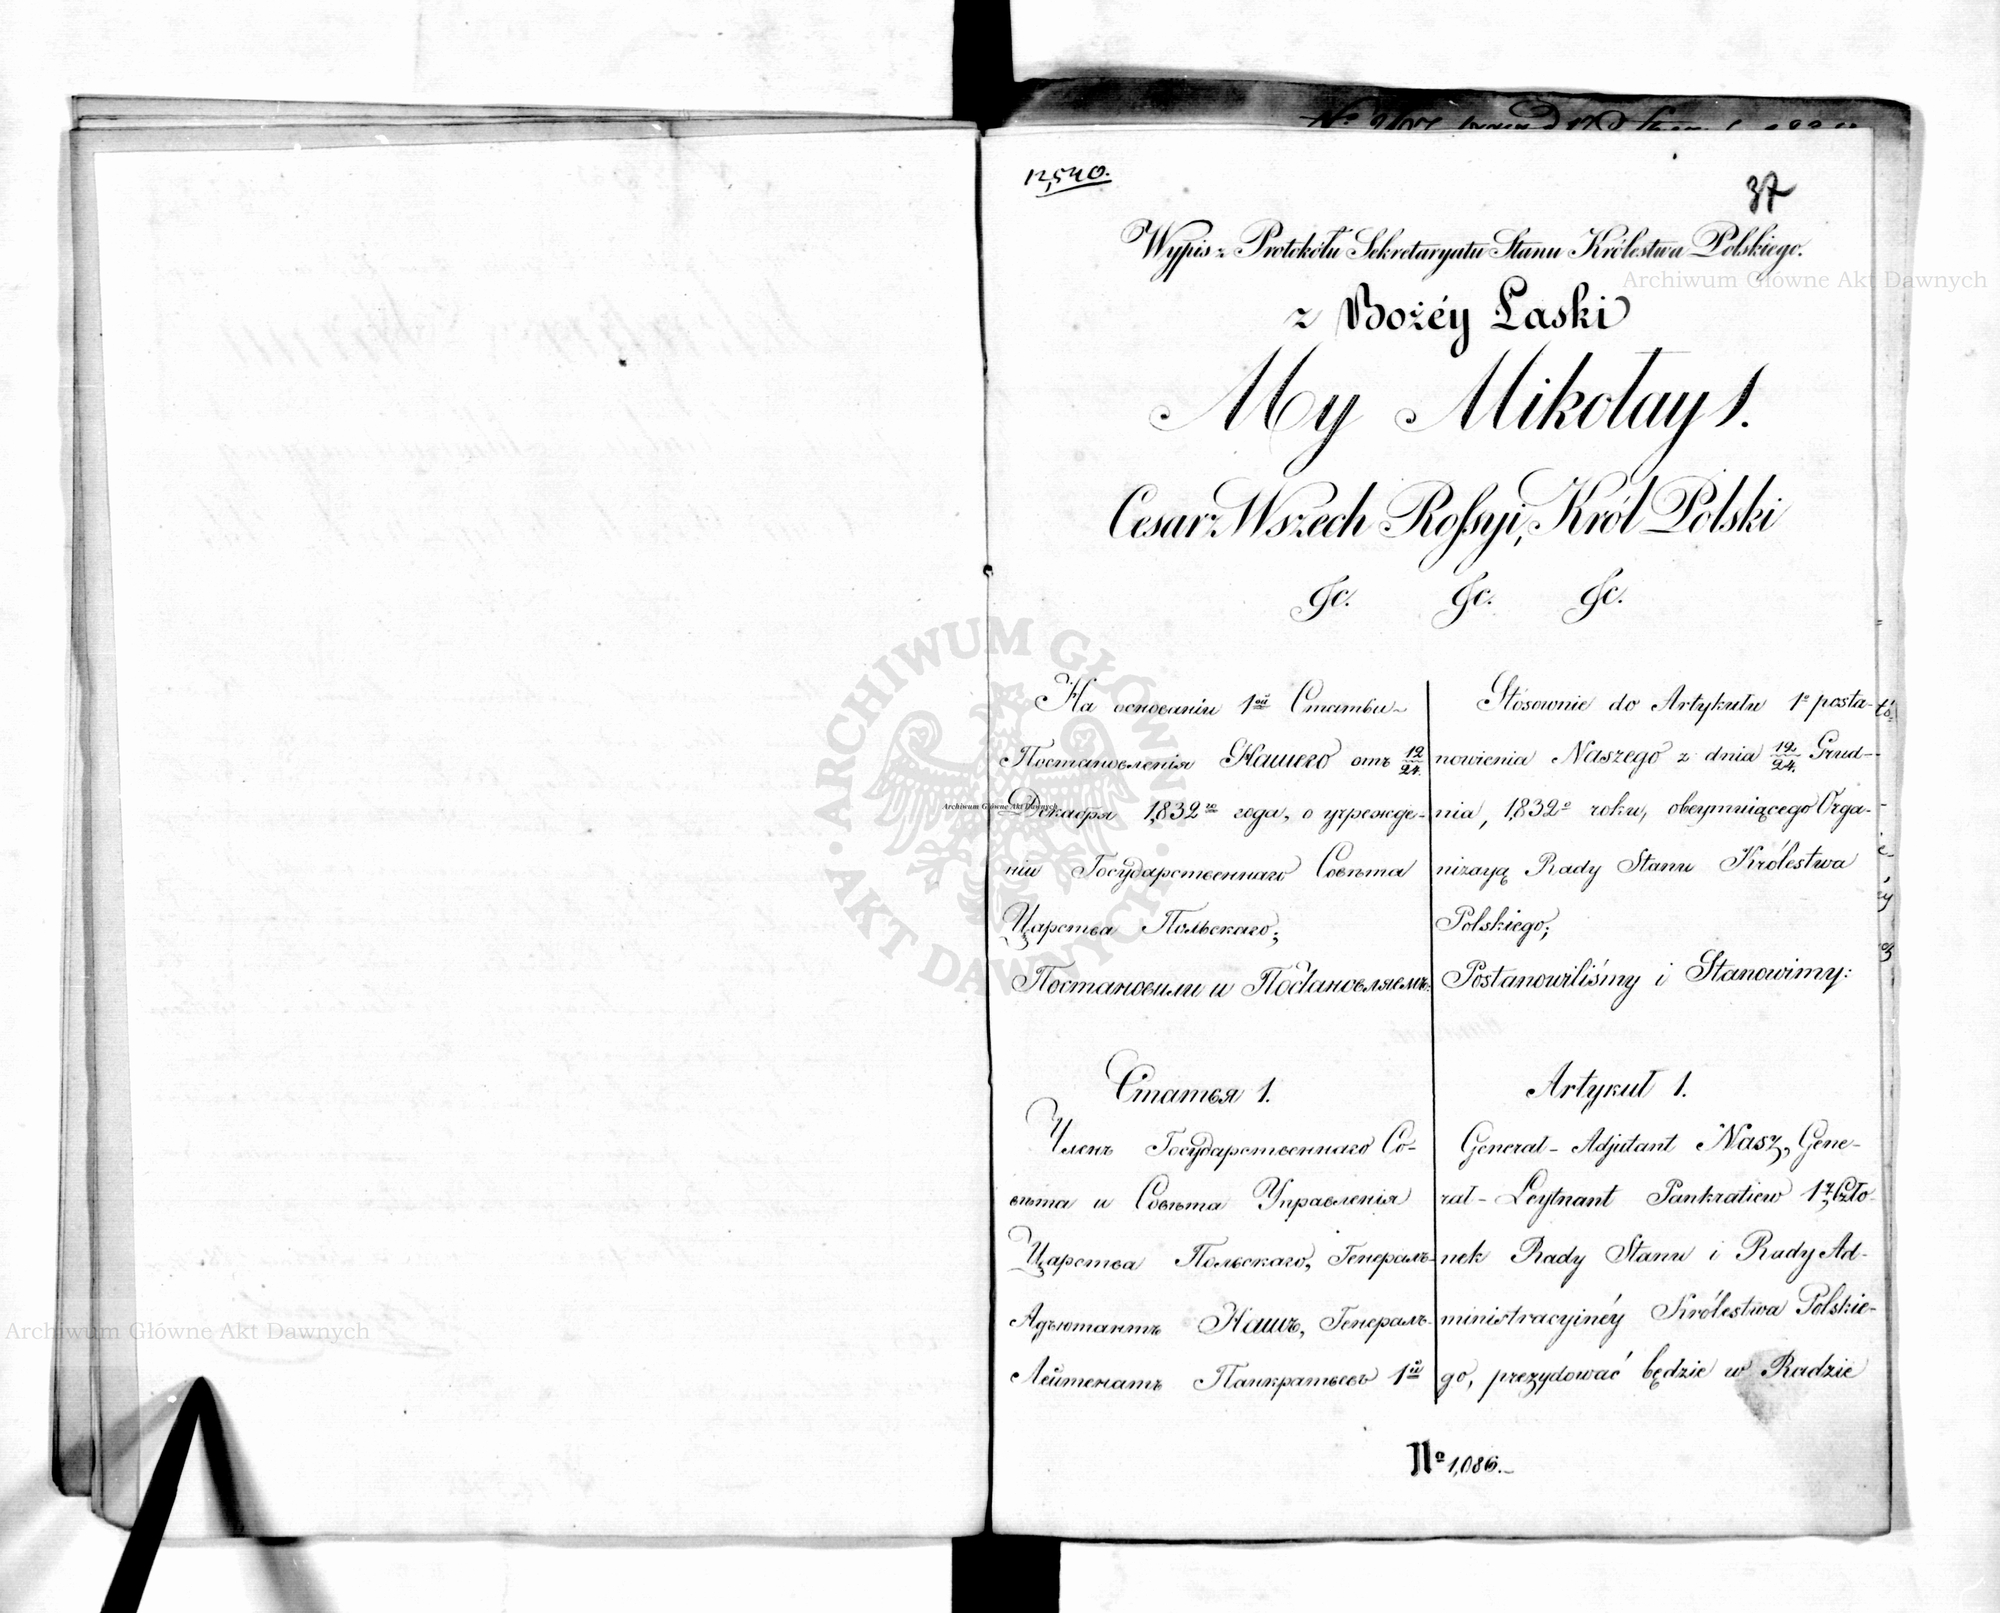 12,540.
37
Wypis z Protokółu Sekretaryatu Stanu Królestwa Polskiego.
z Bożéy Łaski
My Mikołay 1.
Cesarz Wszech Rossyi, Król Polski
&c. &c. &c.
На основаніи 1ой Статьи
Постановленія Нашего отъ 12/24.
Декабря 1,832го года, о учрежде-
ніи Государственнаго Совѣта
Царства Польскаго;
Постановили и Постановляемъ:
Статья 1.
Членъ Государственнаго Со-
вѣта и Совѣта Управленія
Царства Польскаго, Генералъ-
Адъютантъ Нашъ, Генералъ-
Лейтенантъ Панкратьевъ 1й
Stósownie do Artykułu 1o posta-
nowienia Naszego z dnia 12/24. Grud-
nia, 1,832o roku, obeymuiącego Orga-
nizayą Rady Stanu Królestwa
Polskiego;
Postanowiliśmy i Stanowimy:
Artykuł 1.
Generał-Adjutant Nasz, Gene-
rał-Leytnant Pankratiew 1y, Czło-
nek Rady Stanu i Rady Ad-
ministracyinéy Królestwa Polskie-
go, prezydować będzie w Radzie
No 1,086.
Archiwum Główne Akt Dawnych
Archiwum Główne Akt Dawnych
Archiwum Główne Akt Dawnych
ARCHIWUM GŁÓWNE AKT DAWNYCH